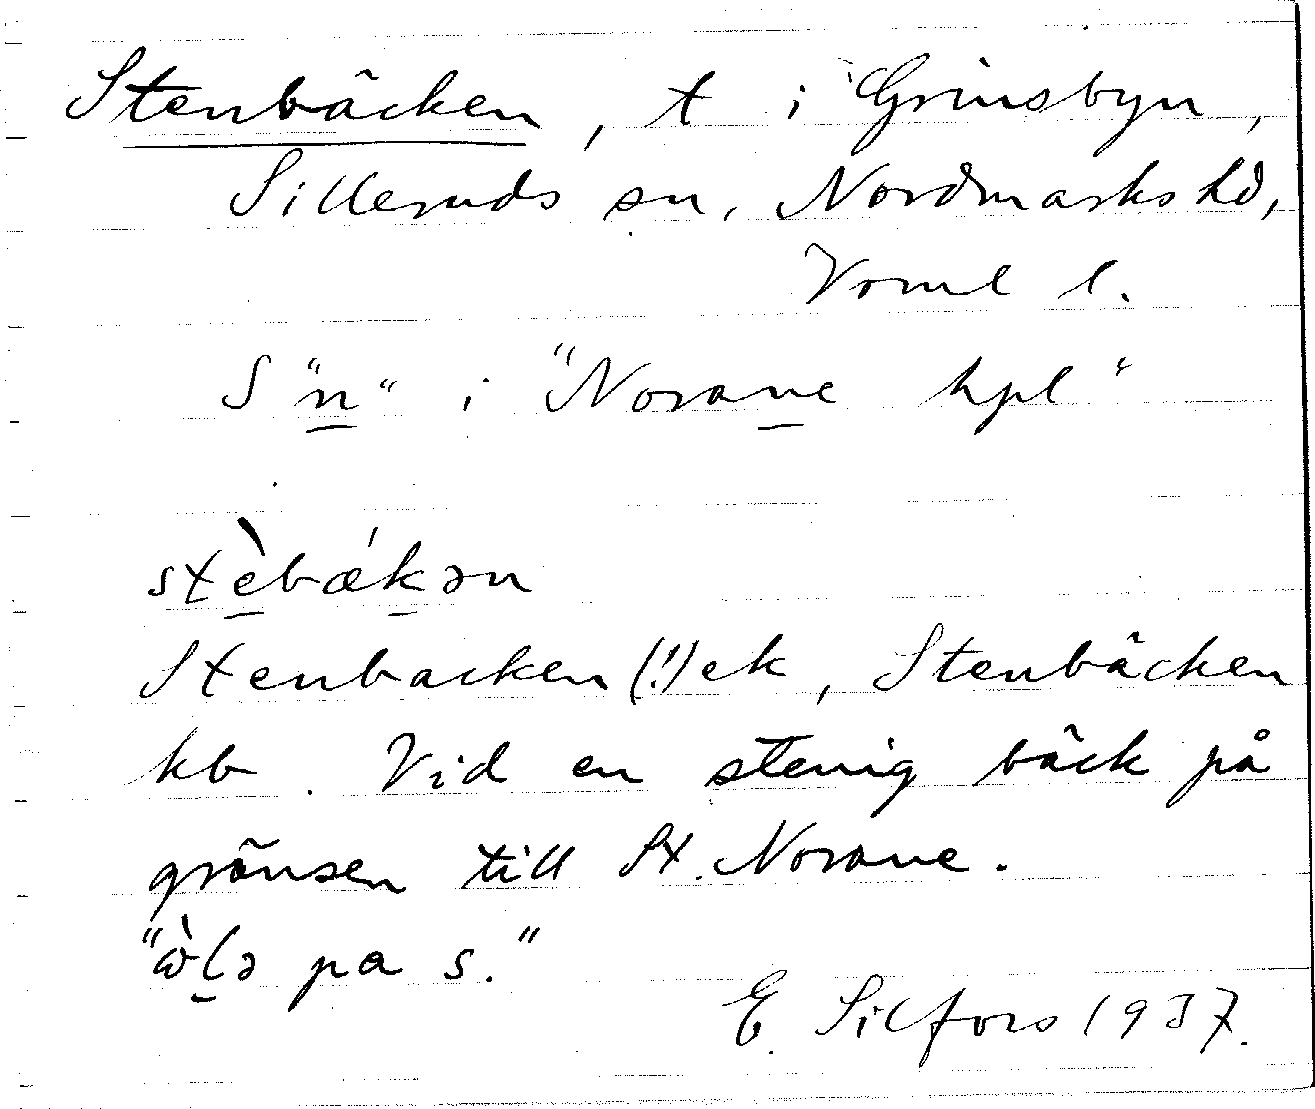 Stenbäcken, t i Grinsbyn,
Silleruds sn, Nordmarks hd,
Vrml l.
S "n" i "Norane hpl"
stèbǽkən
Stenbacken (!) ek, Stenbäcken
kb. Vid en stenig bäck på
gränsen till St. Norane.
pa s."
E. Silfors 1937.